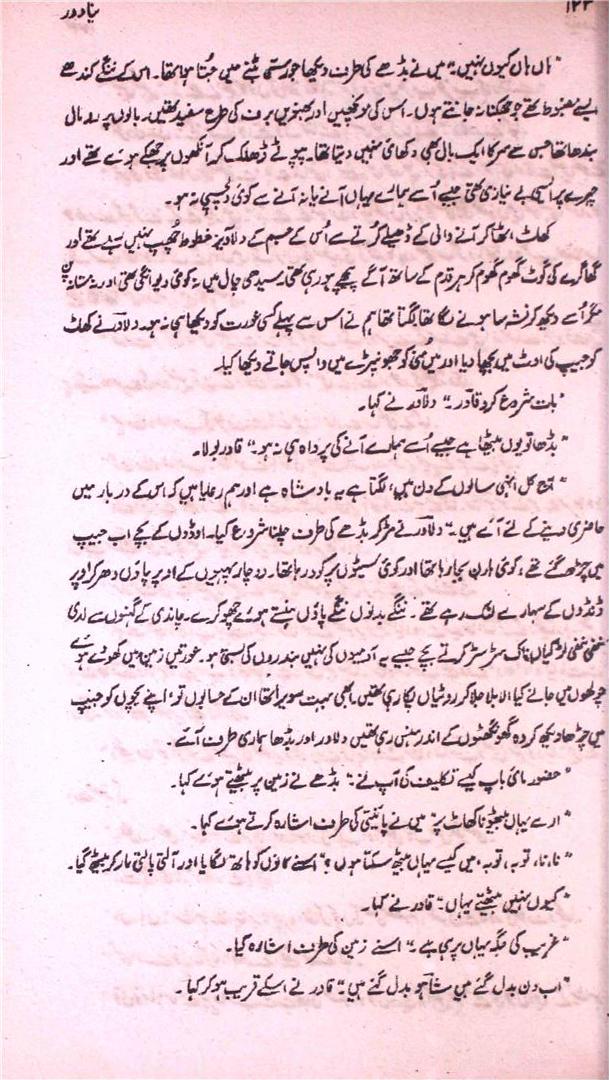 ۱۲۴
نیا دور
"ہاں ہاں کیوں نہیں۔" میں نے بڈھے کی طرف دیکھا جو رسّی بٹنے میں جُتا ہوا تھا۔ اس کے ننگے کندھے
ایسے مضبوط تھے جو تھکنا نہ جانتے ہوں۔ اس کی مونچھیں اور بھنویں برف کی طرح سفید تھیں۔ بالوں پر رومال
بندھا تھا جس سے سر کا ایک بال بھی دکھائی نہیں دیتا تھا۔ پپوٹے ڈھلک کر آنکھوں پر جھکے ہوئے تھے اور
چہرے پر ایسی بے نیازی تھی جیسے اُسے ہمارے یہاں آنے یا نہ آنے سے کوئی دلچسپی نہ ہو۔
کھاٹ اٹھا کر آنے والی کے ڈھیلے کُرتے سے اُس کے جسم کے دلآویز خطوط چُھپ نہیں رہے تھے اور
گھاگرے کی گوٹ گھوم گھوم کر ہر قدم کے ساتھ آگے پیچھے ہو رہی تھی۔ سیدھی چال میں نہ کوئی دیوانگی تھی اور نہ مستانہ پن
مگر اُسے دیکھ کر نشہ سا ہونے لگا تھا۔ لگتا تھا ہم نے اس سے پہلے کسی عورت کو دیکھا ہی نہ ہو۔ دلاور نے کھاٹ
کو جیپ کی اوٹ میں بچھا دیا اور میں نے اُس کو جھونپڑے میں واپس جاتے دیکھا کیا۔
"بات شروع کرو قادر۔" دلاور نے کہا۔
"بڈھا تو یوں بیٹھا ہے جیسے اُسے ہمارے آنے کی پرواہ ہی نہ ہو۔" قادر بولا۔
"آج کل انہی سالوں کے دن ہیں، لگتا ہے یہ بادشاہ ہے اور ہم رعایا ہیں کہ اس کے دربار میں
حاضری دینے کے لئے آئے ہیں۔" دلاور نے مڑ کر بڈھے کی طرف چلنا شروع کیا۔ اوڈوں کے بچے اب جیپ
میں چڑھ گئے تھے، کوئی ہارن بجا رہا تھا اور کوئی سیٹوں پر کود رہا تھا۔ دو چار پہیوں کے اوپر پاؤں دھر کر اوپر
ڈنڈوں کے سہارے لٹک رہے تھے۔ ننگے بدن ننگے پاؤں ہنستے ہوئے چھوکرے۔ چاندی کے گہنوں سے لدی
ننھی ننھی لڑکیاں ناک سڑ سڑ کرتے بچے جیسے یہ آدمیوں کی نہیں بندروں کی بستی ہو۔ عورتیں زمین میں کھودے ہوئے
چولھوں میں جانے کیا الا بلا جلا کر روٹیاں پکا رہی تھیں۔ ابھی بہت سویرا تھا ان کے حسابوں تو، اپنے بچوں کو جیپ
میں چڑھا دیکھ کر وہ گھونگھٹوں کے اندر ہنس رہی تھیں دلاور اور بڈھا ہماری طرف آئے۔
"حضور مائی باپ کیسے تکلیف کی آپ نے۔" بڈھے نے زمین پر بیٹھتے ہوئے کہا۔
"ارے یہاں بیٹھو نا کھاٹ پر" میں نے پائینتی کی طرف اشارہ کرتے ہوئے کہا۔
"نا، نا، توبہ، توبہ، میں کیسے یہاں بیٹھ سکتا ہوں؟" اسنے کانوں کو ہاتھ لگایا اور آلتی پالتی مار کر بیٹھ گیا۔
"کیوں نہیں بیٹھتے یہاں۔" قادر نے کہا۔
"غریب کی جگہ یہاں پر ہی ہے۔" اسنے زمین کی طرف اشارہ کیا۔
"اب دن بدل گئے ہیں شاہو بدل گئے ہیں۔" قادر نے اسکے قریب ہو کر کہا۔